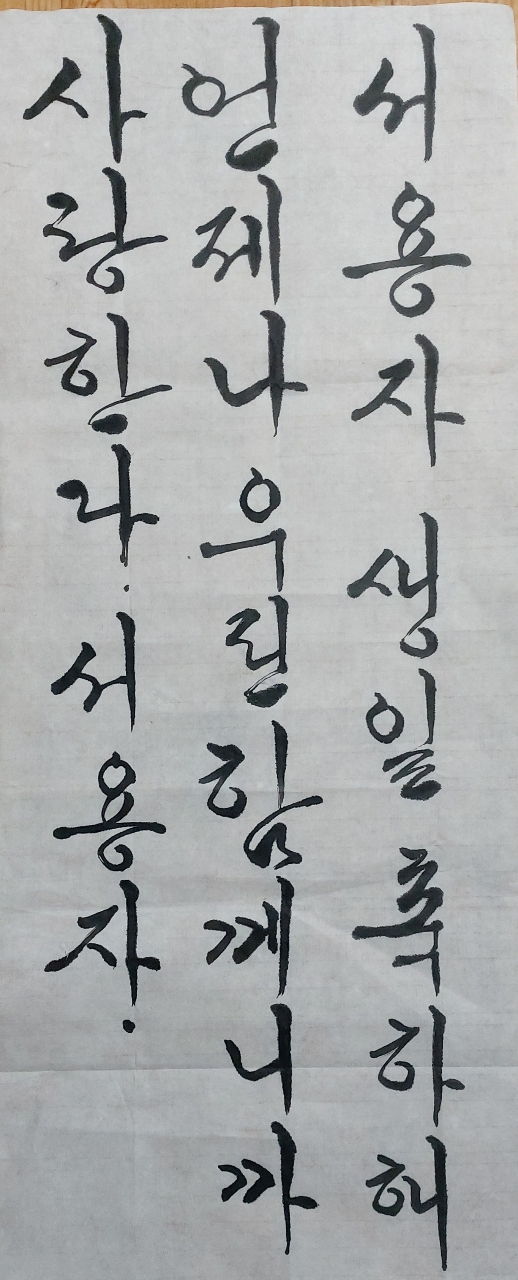 서용자 생일 축하해
언제나 우린 함께니까
사랑한다. 서용자.